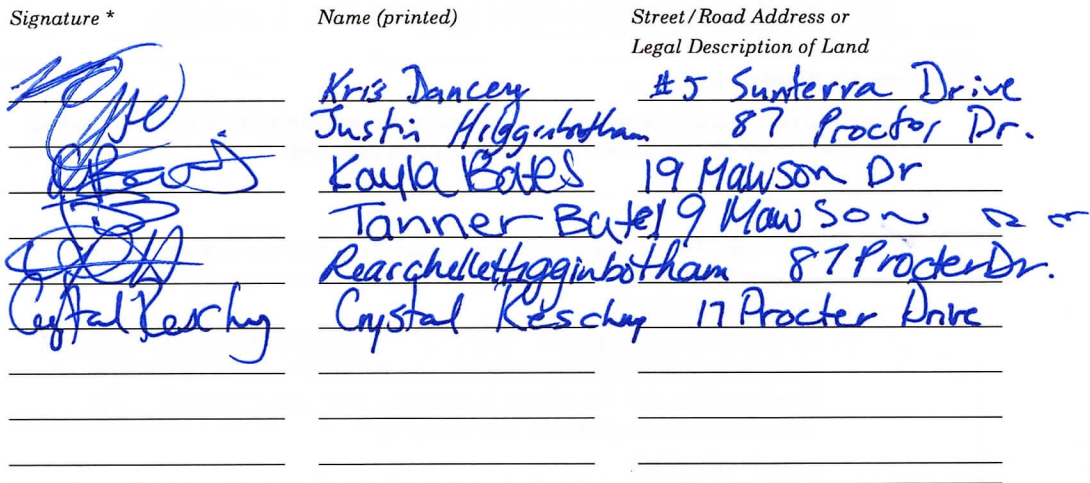 Signature * Name (printed) Street/Road Address or
Legal Description of Land
Kris Dancey #5 Sunterra Drive
Justin Higginbotham 87 Proctor Dr.
Kayla Bates 19 Mawson Dr
Tanner Bate 19 Mawson
Rearchelle Higginbotham 87 Procter Dr.
Crystal Keschny Crystal Keschny 17 Procter Drive